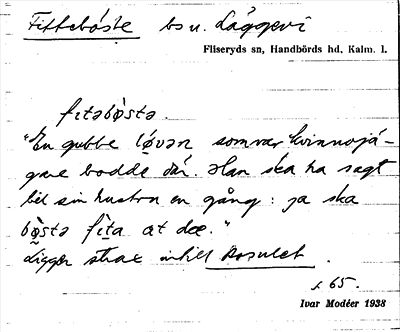 Fittebóste bs u. Läggevi
Fliseryds sn, Handbörds hd, Kalm. l.
fɩtəbo̩stə.
"En gubbe lø̩vən som var kvinnojä-
gare bodde där. Han ska ha sagt
till sin hustru en gång: ja ska
bø̩stə fɩta at dæ."
Ligger strax intill Rosulet.
f. 65.
Ivar Modéer 1938